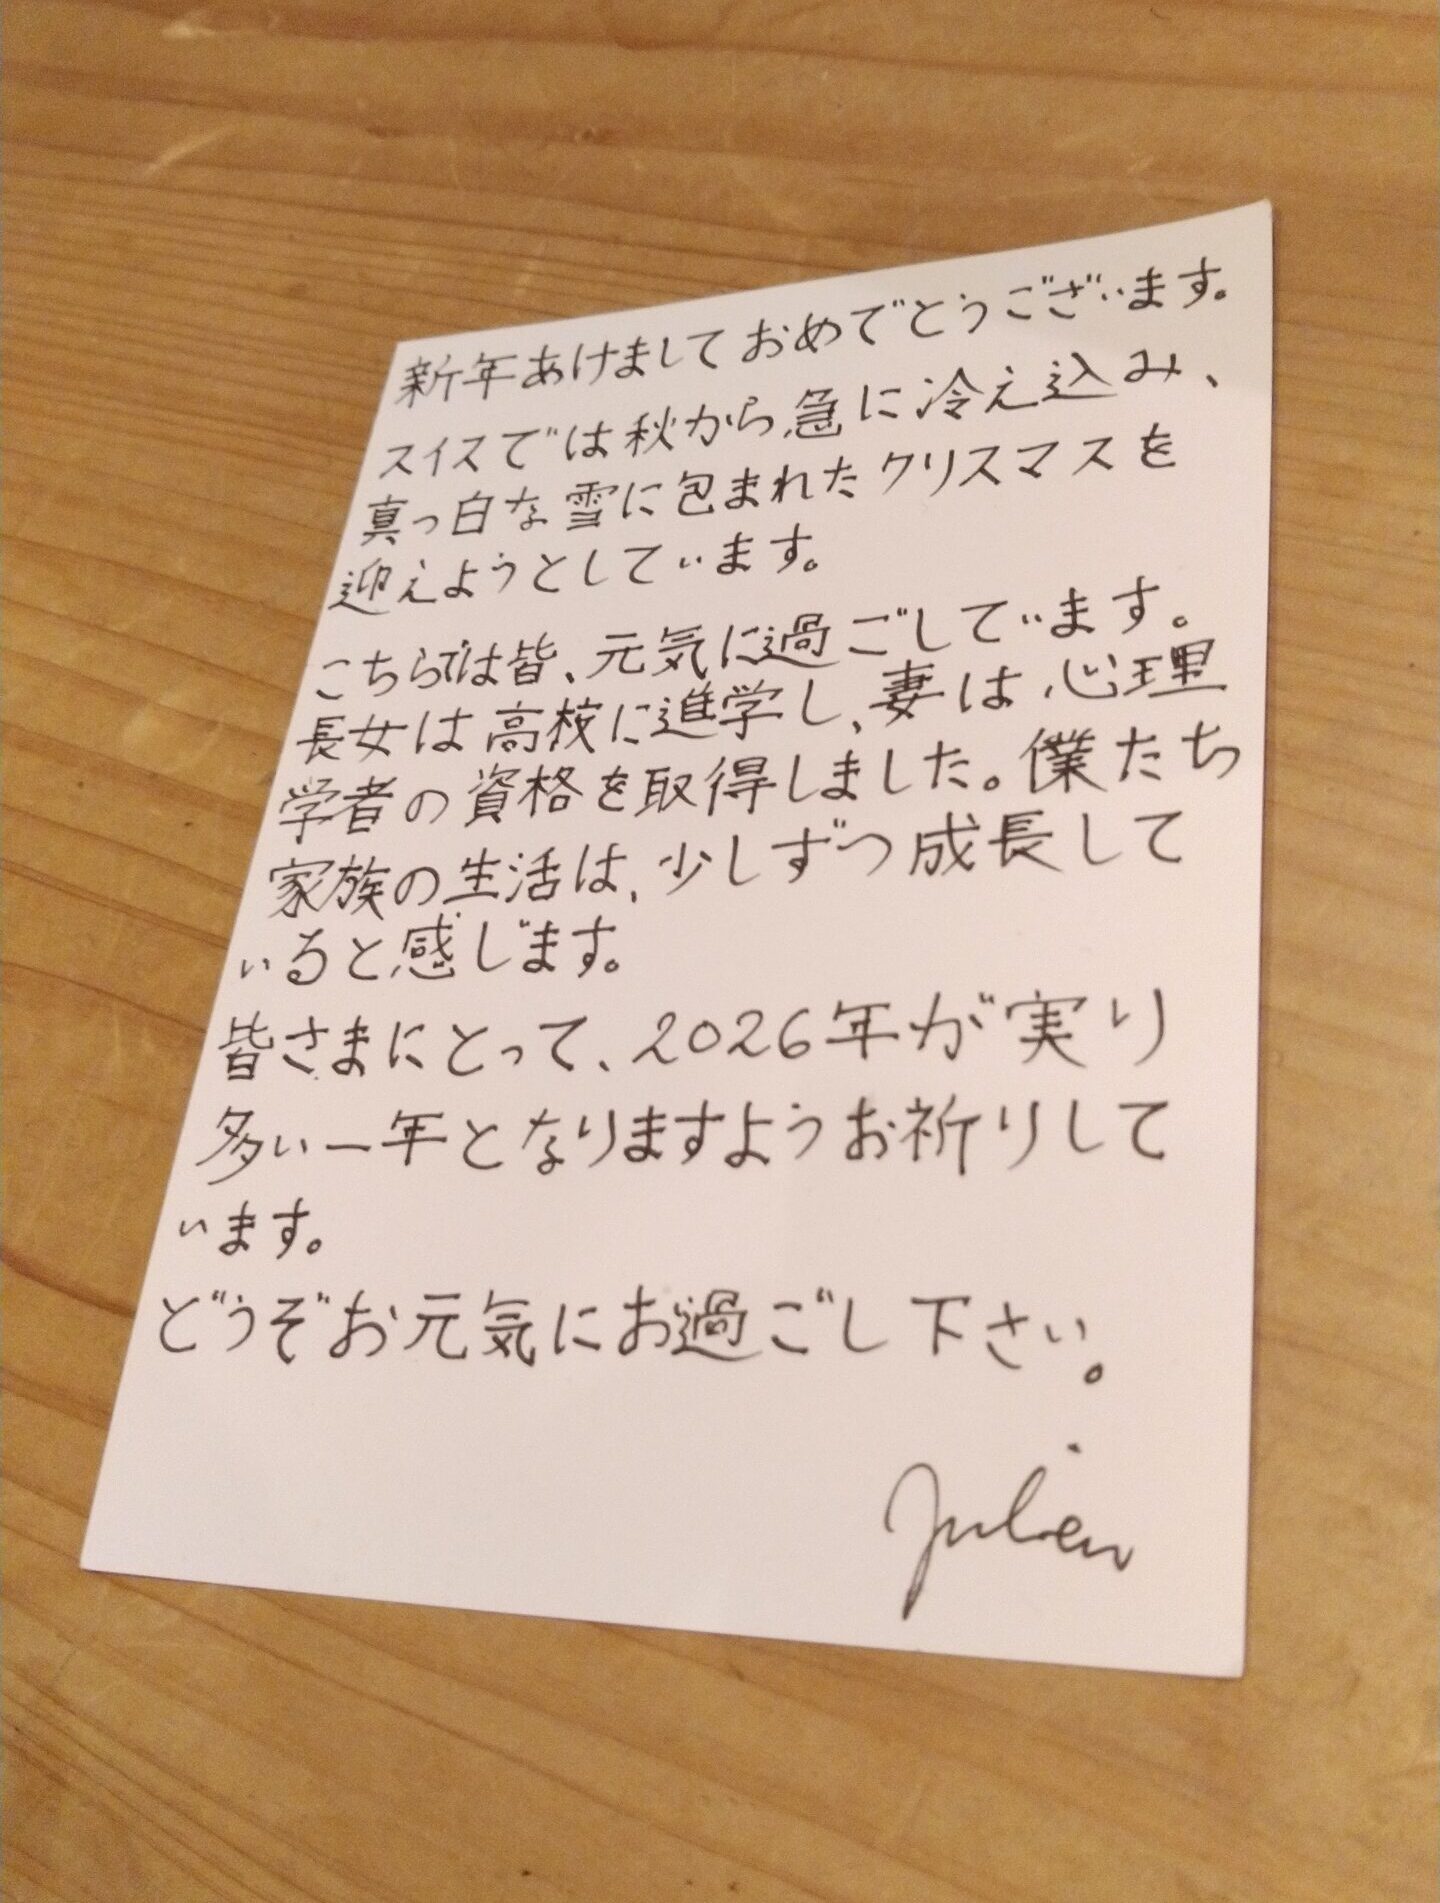 新年あけましておめでとうございます。
スイスでは秋から急に冷え込み、
真っ白な雪に包まれたクリスマスを
迎えようとしています。
こちらでは皆、元気に過ごしています。
長女は高校に進学し、妻は心理
学者の資格を取得しました。僕たち
家族の生活は、少しずつ成長して
いると感じます。
皆さまにとって、2026年が実り
多い一年となりますようお祈りして
います。
どうぞお元気にお過ごし下さい。
Julien